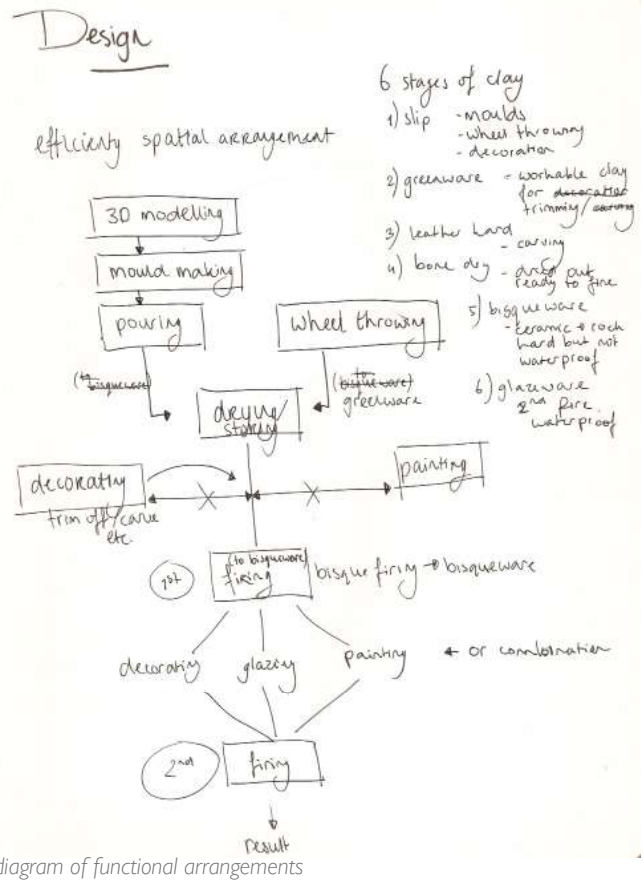 Design
efficienty spatial arrangement
6 stages of clay
1) slip - moulds
- wheel throwing
- decoration
2) greenware = workable clay
for decoration
trimming/carving
3) leather hard
- carving
4) bone dry - dried out
ready to fire
5) bisqueware
- ceramic → rock
hard but not
waterproof
6) glazeware
2nd fire
waterproof
3D modelling
mould making
pouring
wheel throwing
(to
bisqueware)
(to
bisqueware)
greenware
drying/
storing
decorating
trim off/carve
etc.
painting
1st
(to bisqueware)
firing
bisque firing → bisqueware
decorating
glazing
painting
← or combination
2nd
firing
result
diagram of functional arrangements